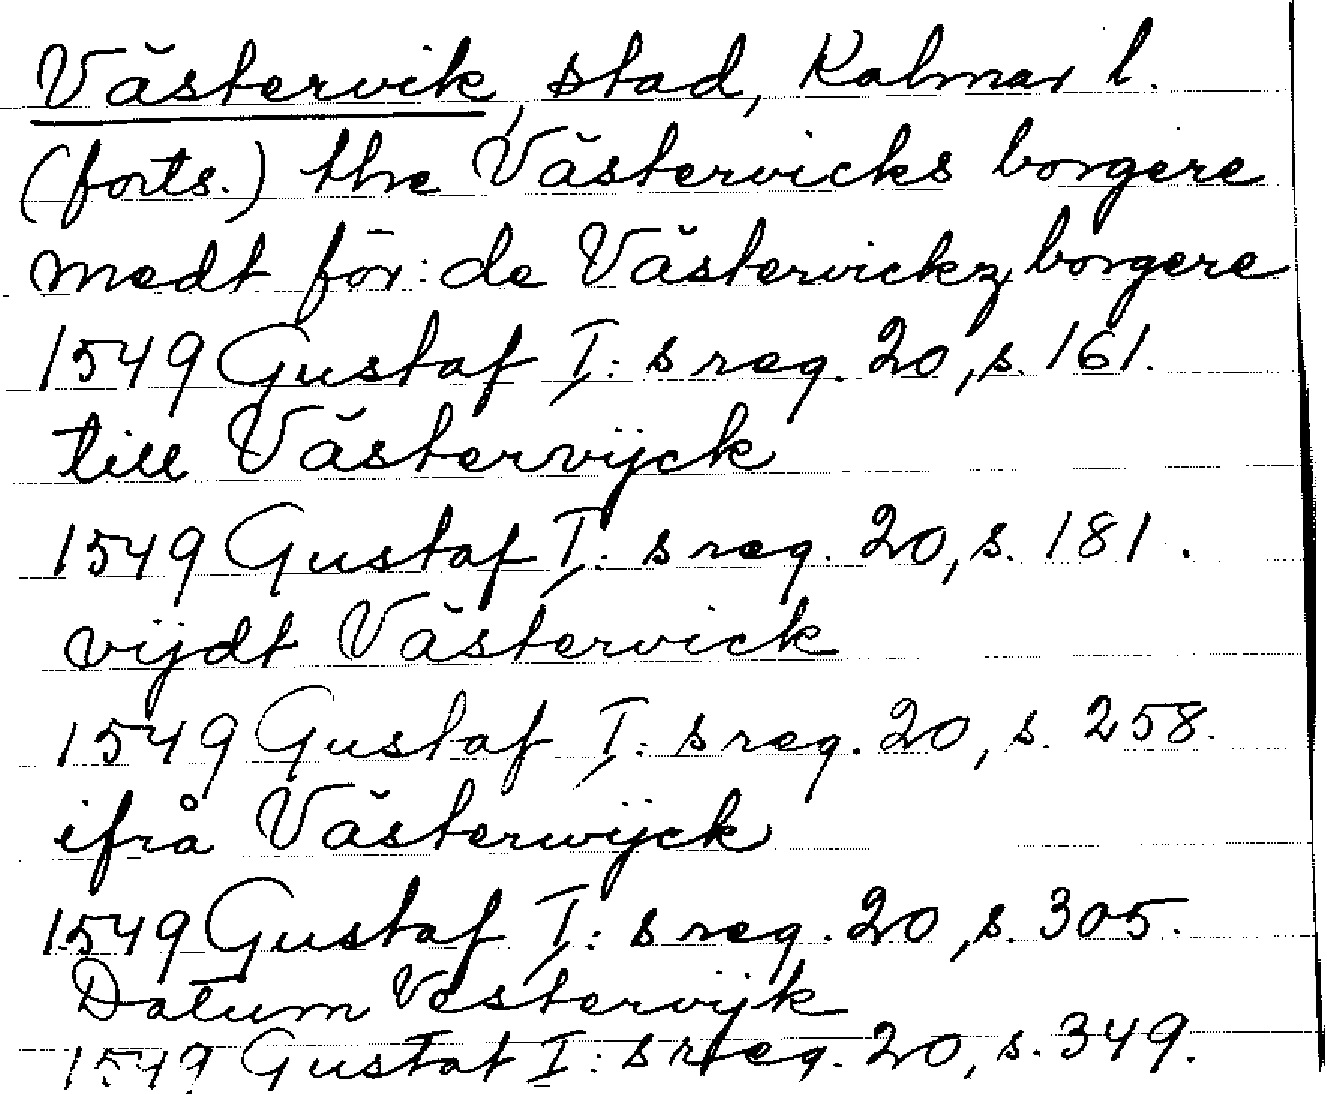 Västervik, stad, Kalmar l.
(forts.) the Västervicks borgere
medt för: de Västervickz borgere
1549 Gustaf I: s reg. 20, s. 161.
till Västervijck
1549 Gustaf I: s reg. 20, s. 181.
vijdt Västervick
1549 Gustaf I: s reg. 20, s. 258.
ifrå Västerwijck
1549 Gustaf I: s reg. 20, s. 305.
Datum Vestervijk
1549 Gustaf I: s reg. 20, s. 349.